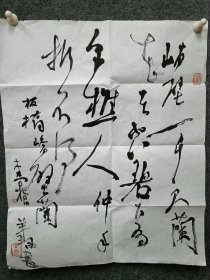 峭壁一千尺蘭
花在空碧下有
采樵人伸手
折不得
板橋峭壁蘭